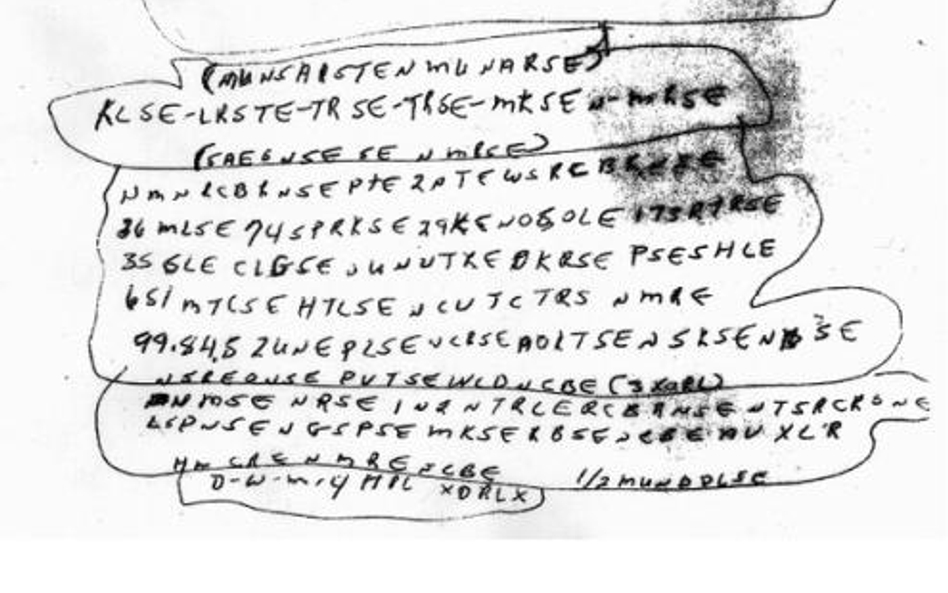 (MUNSAISTENMUNARSE)
KLSE-LRSTE-TRSE-TRSE-MKSEN-MRSE
(SAEGNSE SE NMRSE)
NMNRCBRNSE PTE 2NTEWSRCBRNSE
36 MLSE 74SPRKSE 29KENOSOLE 173RTRSE
35 GLE CLGSE UNUTXE DKRSE PSESHLE
651 MTCSE HTLSE NCUTCTRS NMRE
99.84.5 2UNEPLSE NCRSE AOLTSE NSKSE N SE
NSREONSE PVTSE WLD NCBE (3XORL)
NMSE NRSE IN2NTRLERCBRNSE NTSRCRONE
LSPNSE NGSPSE MKSERBSE NCBE AV XL'R
HM CRE NMRE NCBE 1/2 MUNDDLSE
D-W-M-Y MIL XDRLX